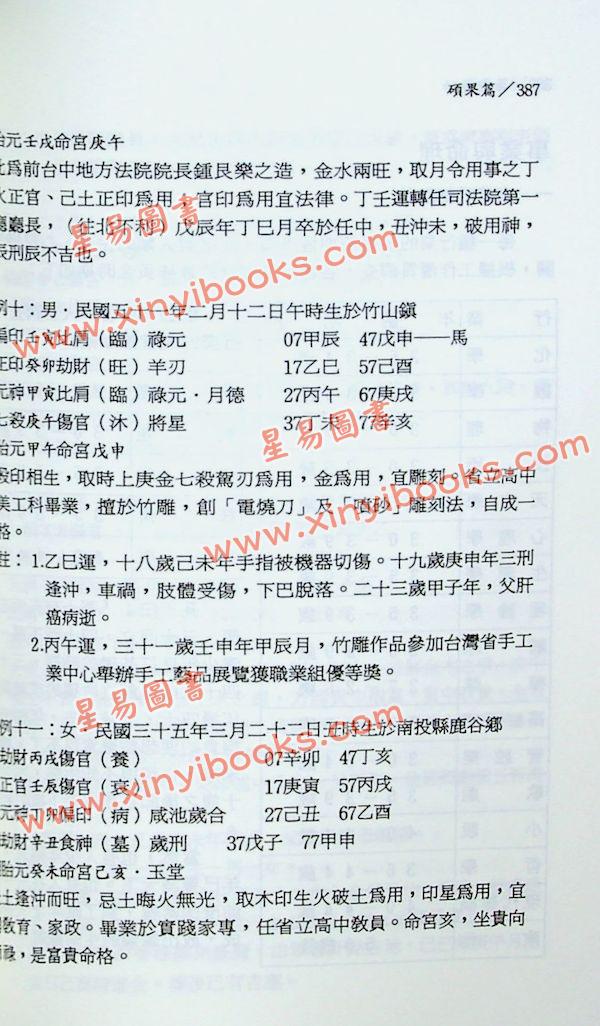 碩果篇／387
胎元壬戌命宮庚午
此為前台中地方法院院長鍾艮樂之造，金水兩旺，取月令用事之丁
火正官、己土正印為用，官印為用宜法律。丁壬運轉任司法院第一
廳廳長，（往北不利）戊辰年丁巳月卒於任中，丑沖未，破用神，
辰刑辰不吉也。
例十：男．民國五十一年二月十二日午時生於竹山鎮
偏印壬寅比肩（臨）祿元 07甲辰 47戊申——馬
正印癸卯劫財（旺）羊刃 17乙巳 57己酉
元神甲寅比肩（臨）祿元．月德 27丙午 67庚戌
七殺庚午傷官（沐）將星 37丁未 77辛亥
胎元甲午命宮戊申
殺印相生，取時上庚金七殺駕刃為用，金為用，宜雕刻。省立高中
美工科畢業，擅於竹雕，創「電燒刀」及「噴砂」雕刻法，自成一
格。
註：1.乙巳運，十八歲己未年手指被機器切傷。十九歲庚申年三刑
逢沖，車禍，肢體受傷，下巴脫落。二十三歲甲子年，父肝
癌病逝。
2.丙午運，三十一歲壬申年甲辰月，竹雕作品參加台灣省手工
業中心舉辦手工藝品展覽獲職業組優等獎。
例十一：女．民國三十五年三月二十二日丑時生於南投縣鹿谷鄉
劫財丙戌傷官（養） 07辛卯 47丁亥
正官壬辰傷官（衰） 17庚寅 57丙戌
元神丁卯偏印（病）咸池歲合 27己丑 67乙酉
劫財辛丑食神（墓）歲刑 37戊子 77甲申
胎元癸未命宮己亥．玉堂
土逢沖而旺，忌土晦火無光，取木印生火破土為用，印星為用，宜
教育、家政。畢業於實踐家專，任省立高中教員。命宮亥，坐貴向
祿，是富貴命格。
星易圖書
www.xinyibooks.com
星易圖書
www.xinyibooks.com
星易圖書
www.xinyibooks.com